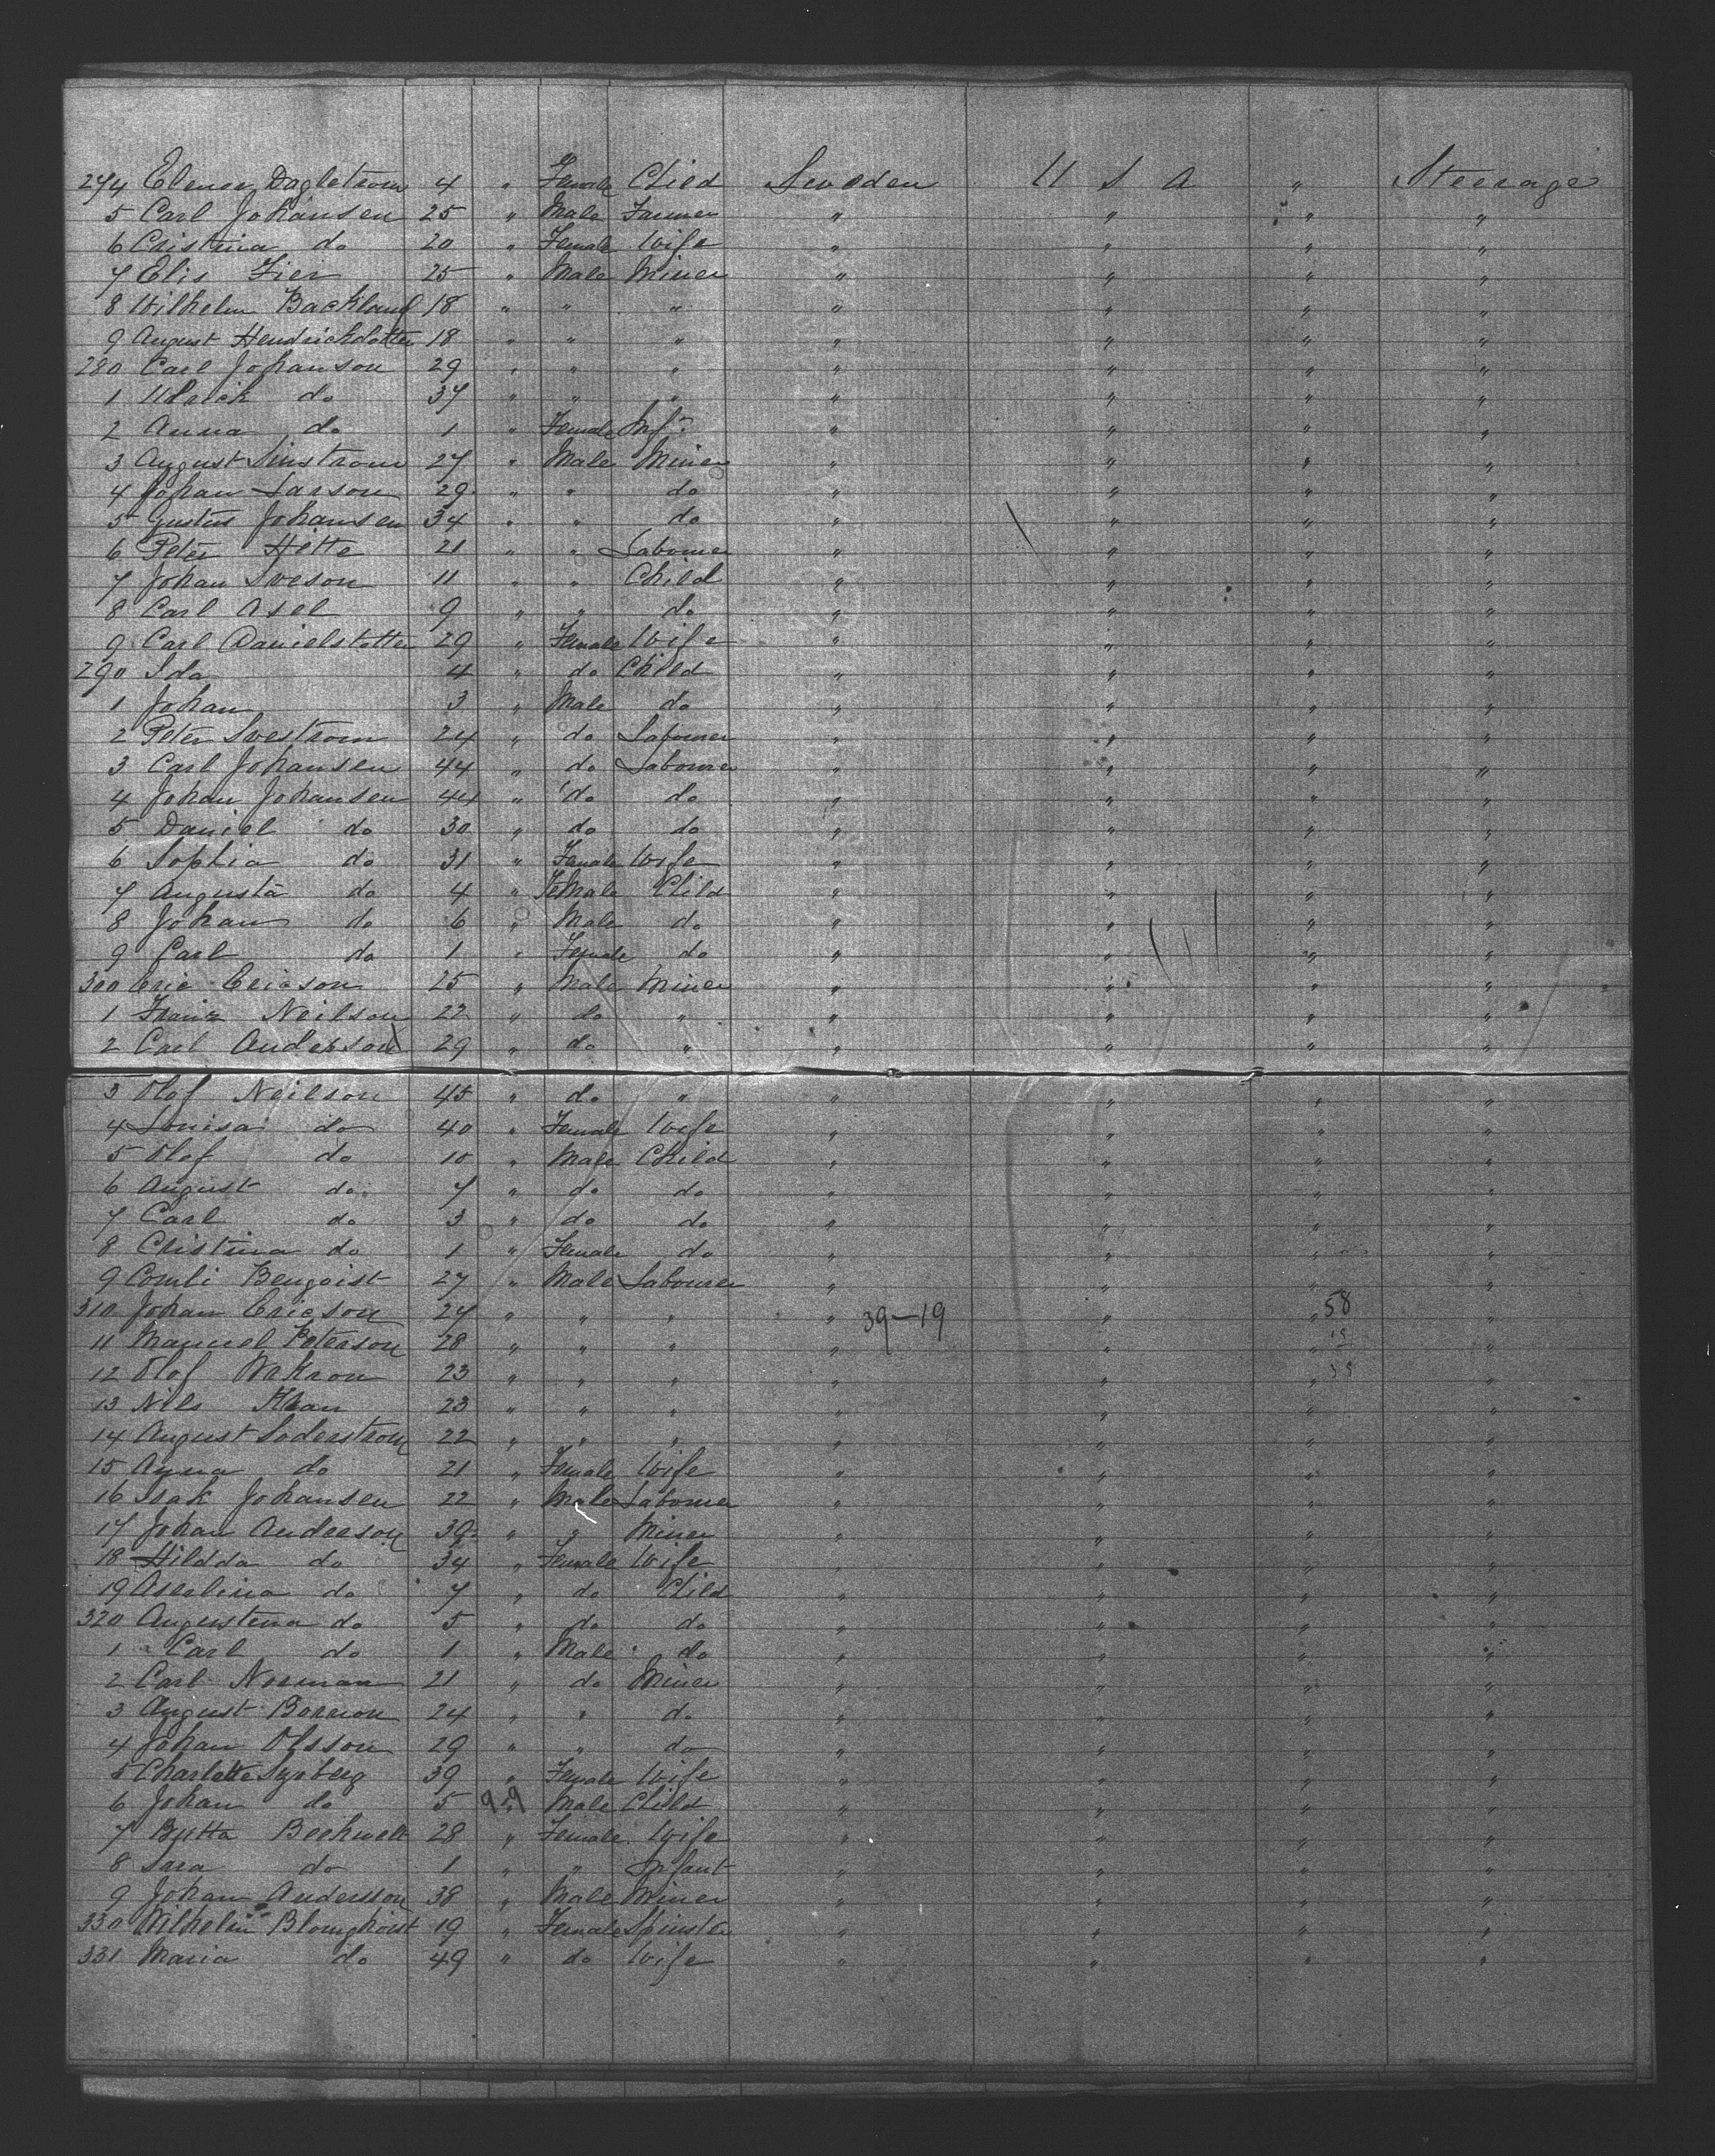 274 Elenor Dagletrom 4 " Female Child Sweden U S A " Steerage
5 Carl Johansen 25 " Male Farmer " " " "
6 Cristina do 20 " Female Wife " " " "
7 Elis Fier 25 " Male Miner " " " "
8 Wilhelm Backland 18 " " " " " " "
9 August Hendrickdotter 18 " " " " " " "
280 Carl Johanson 29 " " " " " " "
1 Ulrick do 37 " " " " " " "
2 Anna do 1 " Female Inft " " " "
3 August Sinstrom 27 " Male Miner " " " "
4 Johan Larson 29 " " do " " " "
5 Gustus Johansen 34 " " do " " " "
6 Peter Hitte 21 " " Labourer " " " "
7 Johan Sveson 11 " " Child " " " "
8 Carl Axel 9 " " do " " " "
9 Carl Danielstotter 29 " Female Wife " " " "
290 Ida 4 " do Child " " " "
1 Johan 3 " Male do " " " "
2 Peter Svestrom 24 " do Labourer " " " "
3 Carl Johansen 44 " do Labourer " " " "
4 Johan Johansen 44 " do do " " " "
5 Daniel do 30 " do do " " " "
6 Sophia do 31 " Female Wife " " " "
7 Augusta do 4 " Female Child " " " "
8 Johan do 6 " Male do " " " "
9 Carl do 1 " Female do " " " "
300 Eric Ericson 25 " Male Miner " " " "
1 Franz Neilson 22 " do " " " " "
2 Carl Anderson 29 " do " " " " "
3 Olof Neilson 45 " do " " " " "
4 Louisa do 40 " Female Wife " " " "
5 Olof do 10 " Male Child " " " "
6 August do 7 " do do " " " "
7 Carl do 3 " do do " " " "
8 Cristina do 1 " Female do " " " "
9 Comli Bengoist 27 " Male Labourer " " " "
310 Johan Ericson 24 " " " " 39-19 " " 58 "
11 Manuel Peterson 28 " " " " " " 19 "
12 Olof Wakron 23 " " " " " " "
13 Nils Khan 23 " " " " " " "
14 August Soderstrom 22 " " " " " " "
15 Anna do 21 " Female Wife " " " "
16 Isak Johansen 22 " Male Labourer " " " "
17 Johan Anderson 39 " " Miner " " " "
18 Hildda do 34 " Female Wife " " " "
19 Aserlina do 7 " do Child " " " "
320 Augustena do 5 " do do " " " "
1 Carl do 1 " Male do " " " "
2 Carl Norman 21 " do Miner " " " "
3 August Borrion 24 " " do " " " "
4 Johan Olsson 29 " " do " " " "
5 Charlotte Syoberg 39 " Female Wife " " " "
6 Johan do 5 9 " 9 Male Child " " " "
7 Butta Beekwell 28 " Female Wife " " " "
8 Sara do 1 " " Infant " " " "
9 Johan Andersson 38 " Male Miner " " " "
330 Wilhelm Blomghoist 19 " Female Spinster " " " "
331 Maria do 49 " do Wife " " " "